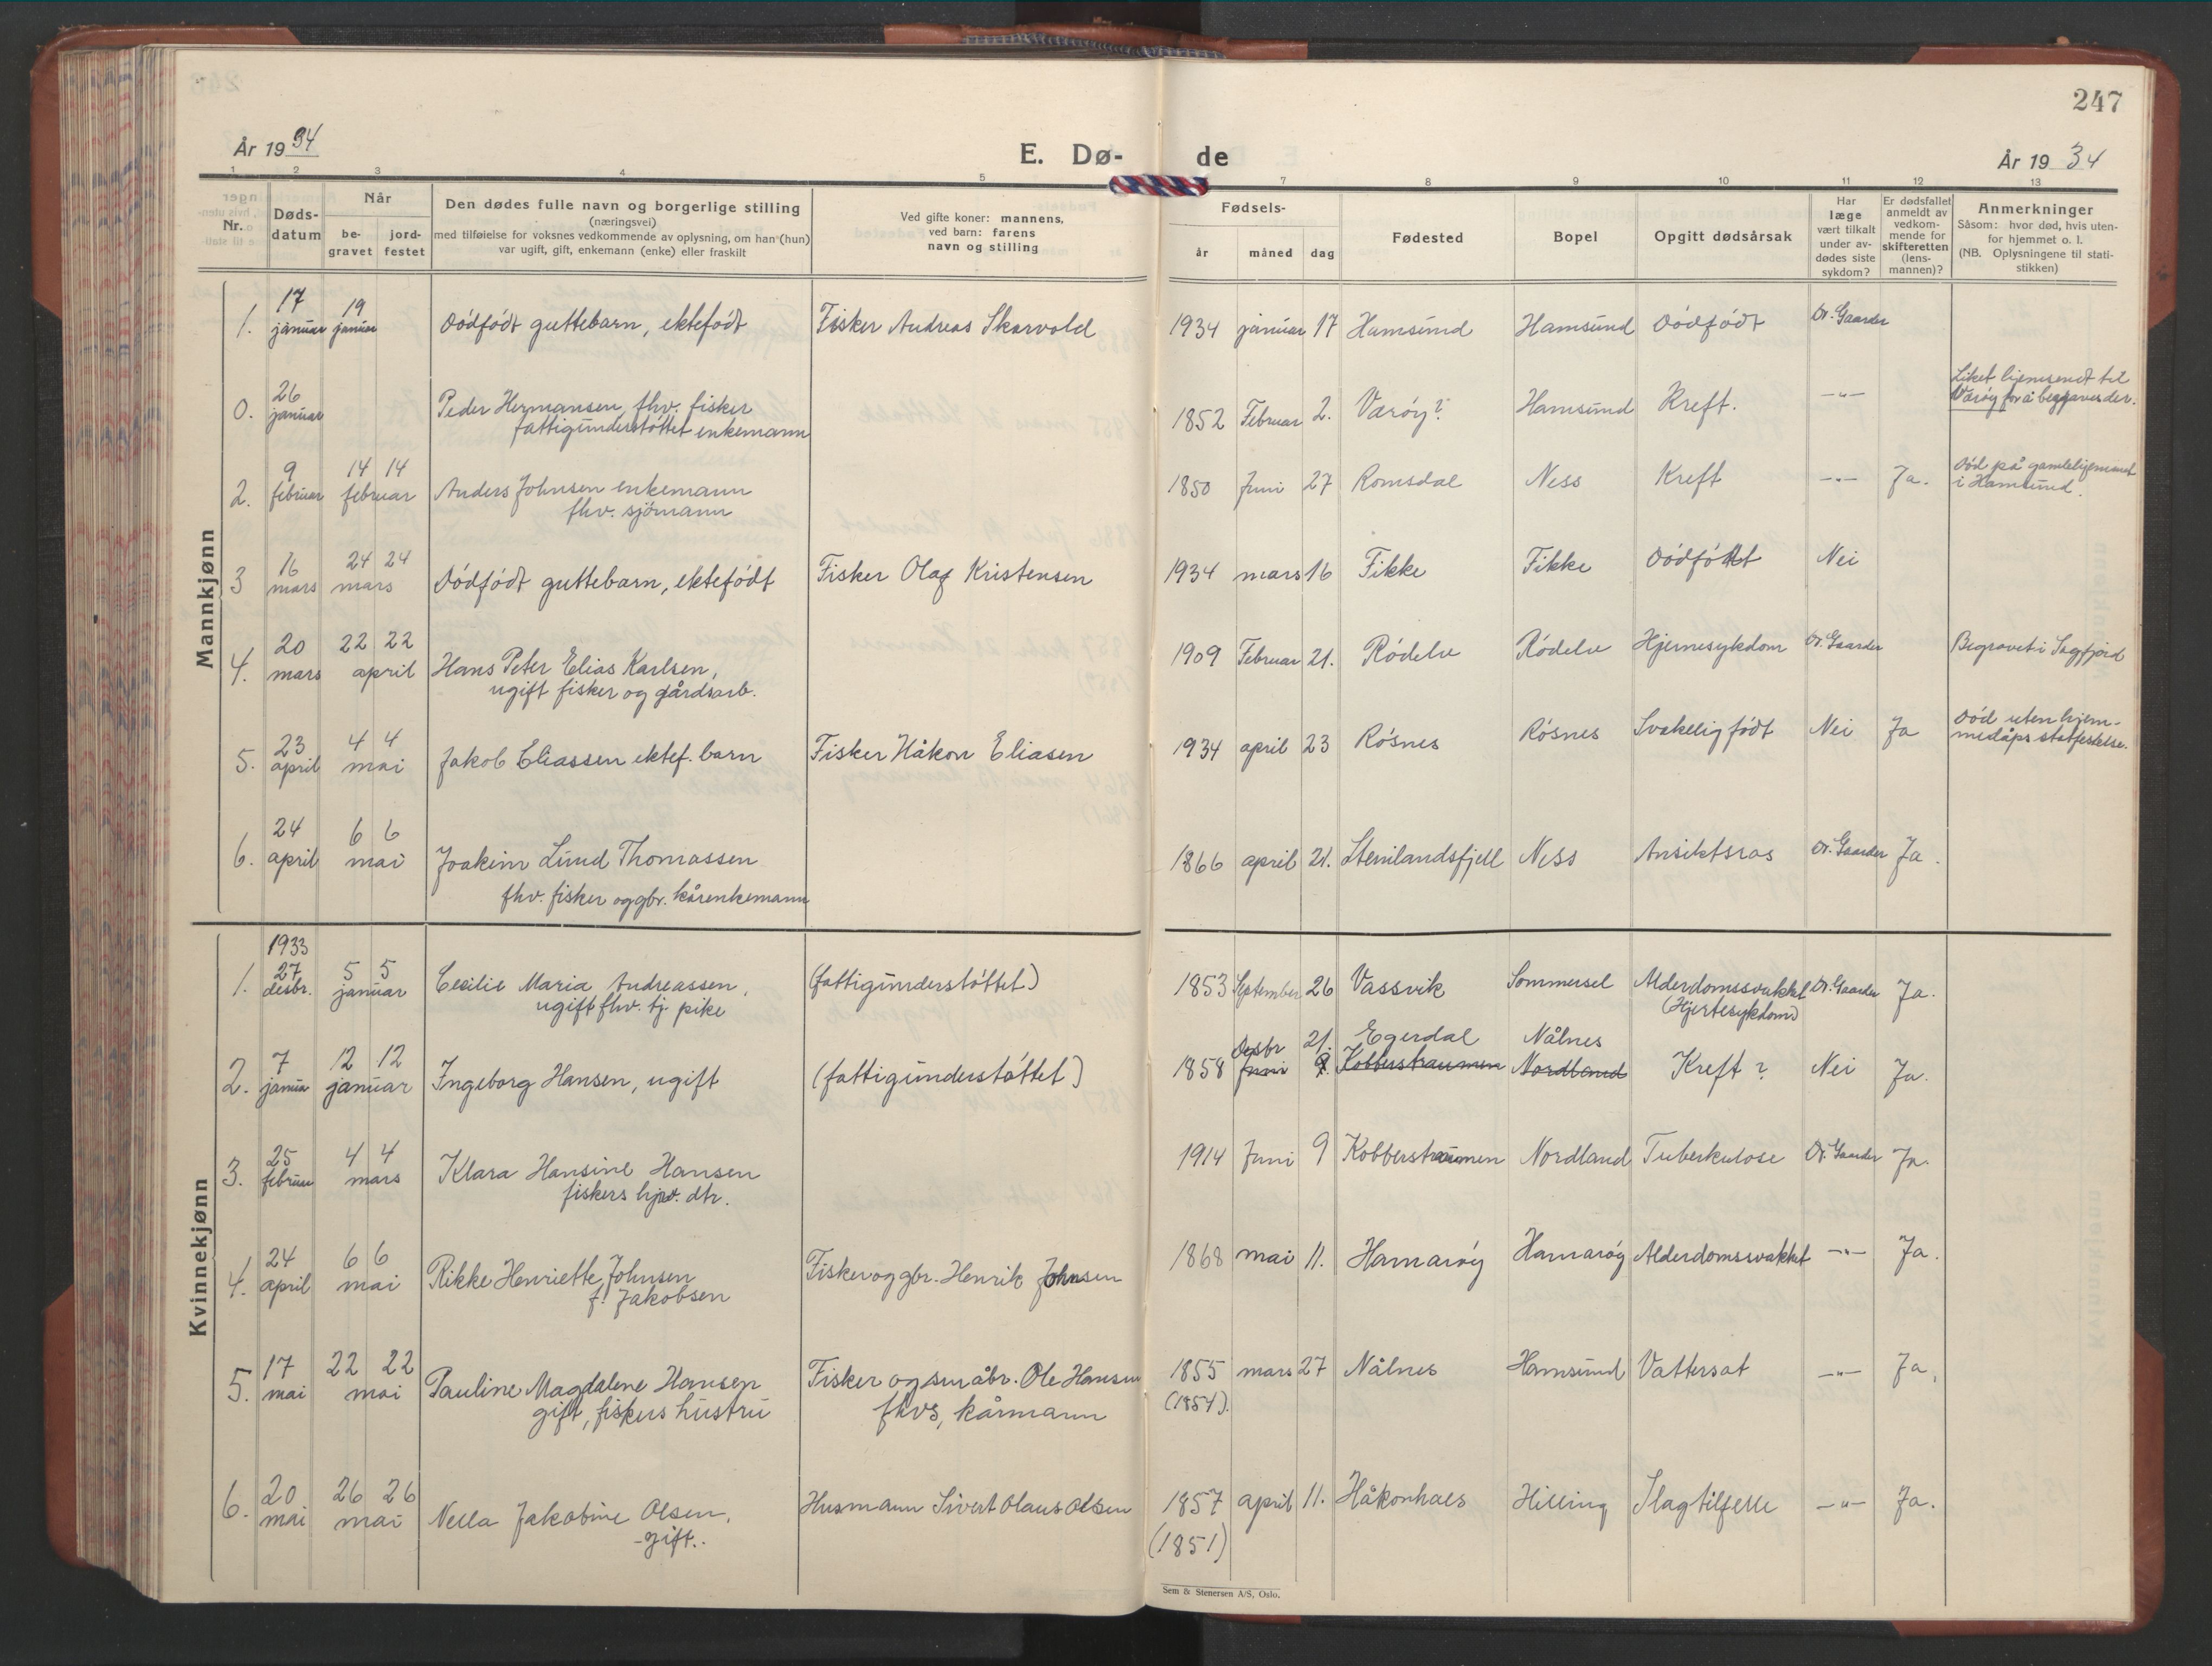 247
År 1934
E. Dø-
de
År 1934
1 2 3 4 5 7 8 9 10 11 12 13
Nr.
Døds-
datum
Når
be-
gravet
jord-
festet
Den dødes fulle navn og borgerlige stilling
(næringsvei)
med tilføielse for voksnes vedkommende av oplysning, om han (hun)
var ugift, gift, enkemann (enke) eller fraskilt
Ved gifte koner: mannens,
ved barn: farens
navn og stilling
Fødsels-
år måned dag
Fødested
Bopel
Opgitt dødsårsak
Har
læge
vært tilkalt
under av-
dødes siste
sykdom?
Er dødsfallet
anmeldt av
vedkom-
mende for
skifteretten
(lens-
mannen)?
Anmerkninger
Såsom: hvor død, hvis uten-
for hjemmet o. l.
(NB. Oplysningene til stati-
stikken)
Mannkjønn
1. 17 januar 19 januar Dödfödt guttebarn, ektefödt Fisker Andreas Skarvold 1934 januar 17 Hamsund Hamsund Dödfödt Dr. Gaarder
0. 26 januar Peder Hermansen, fhv. fisker
fattigunderstöttet enkemann 1852 Februar 2. Væröy? Hamsund Kreft. -"-
Liket hjemsendt til
Væröy for å begraves der.
2. 9 februar 14 14 februar Anders Johnsen enkemann
fhv. sjömann 1850 Juni 27 Romsdal Ness Kreft -"- Ja.
Död på gamlehjemmet
i Hamsund.
3 16 mars 24 24 mars Dödfödt guttebarn, ektefödt Fisker Olaf Kristensen 1934 mars 16 Fikke Fikke Dödfödt Nei
4. 20 mars 22 22 april Hans Peter Elias Karlsen,
ugift fisker og gårdsarb. 1909 Februar 21. Rödelv Rödelv Hjernesykdom Dr. Gaarder Begravet i Sagfjord
5. 23 april 4 4 mai Jakob Eliassen ektef. barn Fisker Håkon Eliasen 1934 april 23 Rösnes Rösnes Svakelig födt Nei Ja
Död uten hjem-
medåps stadfestelse.
6. 24 april 6 6 mai Joakim Lund Thomassen
fhv. fisker og gbr. kårenkemann 1866 april 21. Stenilandsfjell Ness Ansiktsros Dr. Gaarder Ja.
Kvinnekjønn
1933
1. 27 desbr. 5 5 januar Cecilie Maria Andreassen,
ugift fhv. tj. pike (fattigunderstöttet) 1853 September 26 Vassvik Sommersel Alderdomssvakhet
(Hjertesykdom) Dr. Gaarder Ja.
Desbr 21. Egerdal Nålnes
2. 7 januar 12 12 januar Ingeborg Hansen, ugift (fattigunderstöttet) 1858 Juni 9. Kobberstraumen Nordland Kreft? Nei Ja.
3. 25 februar 4 4 mars Klara Hansine Hansen
fiskers hjv. dtr. 1914 Juni 9 Kobberstraumen Nordland Tuberkulose Dr. Gaarder Ja.
4. 24 april 6 6 mai Rikke Henriette Johnsen
f. Jakobsen Fisker og gbr. Henrik Johnsen 1868 mai 11. Hamaröy Hamaröy Alderdomssvakhet -"- Ja.
5. 17 mai 22 22 mai Pauline Magdalene Hansen
gift, fiskers hustru Fisker og småbr. Ole Hansen
fhvs, kårmann 1855 mars 27 Nålnes Hamsund Vattersot -"- Ja.
(1854).
6. 20 mai 26 26 mai Nella Jakobine Olsen,
-gift. Husmann Sivert Olaus Olsen 1857 april 11. Håkonhals Hilling Slagtilfelle -"- Ja.
(1851)
Sem & Stenersen A/S, Oslo.